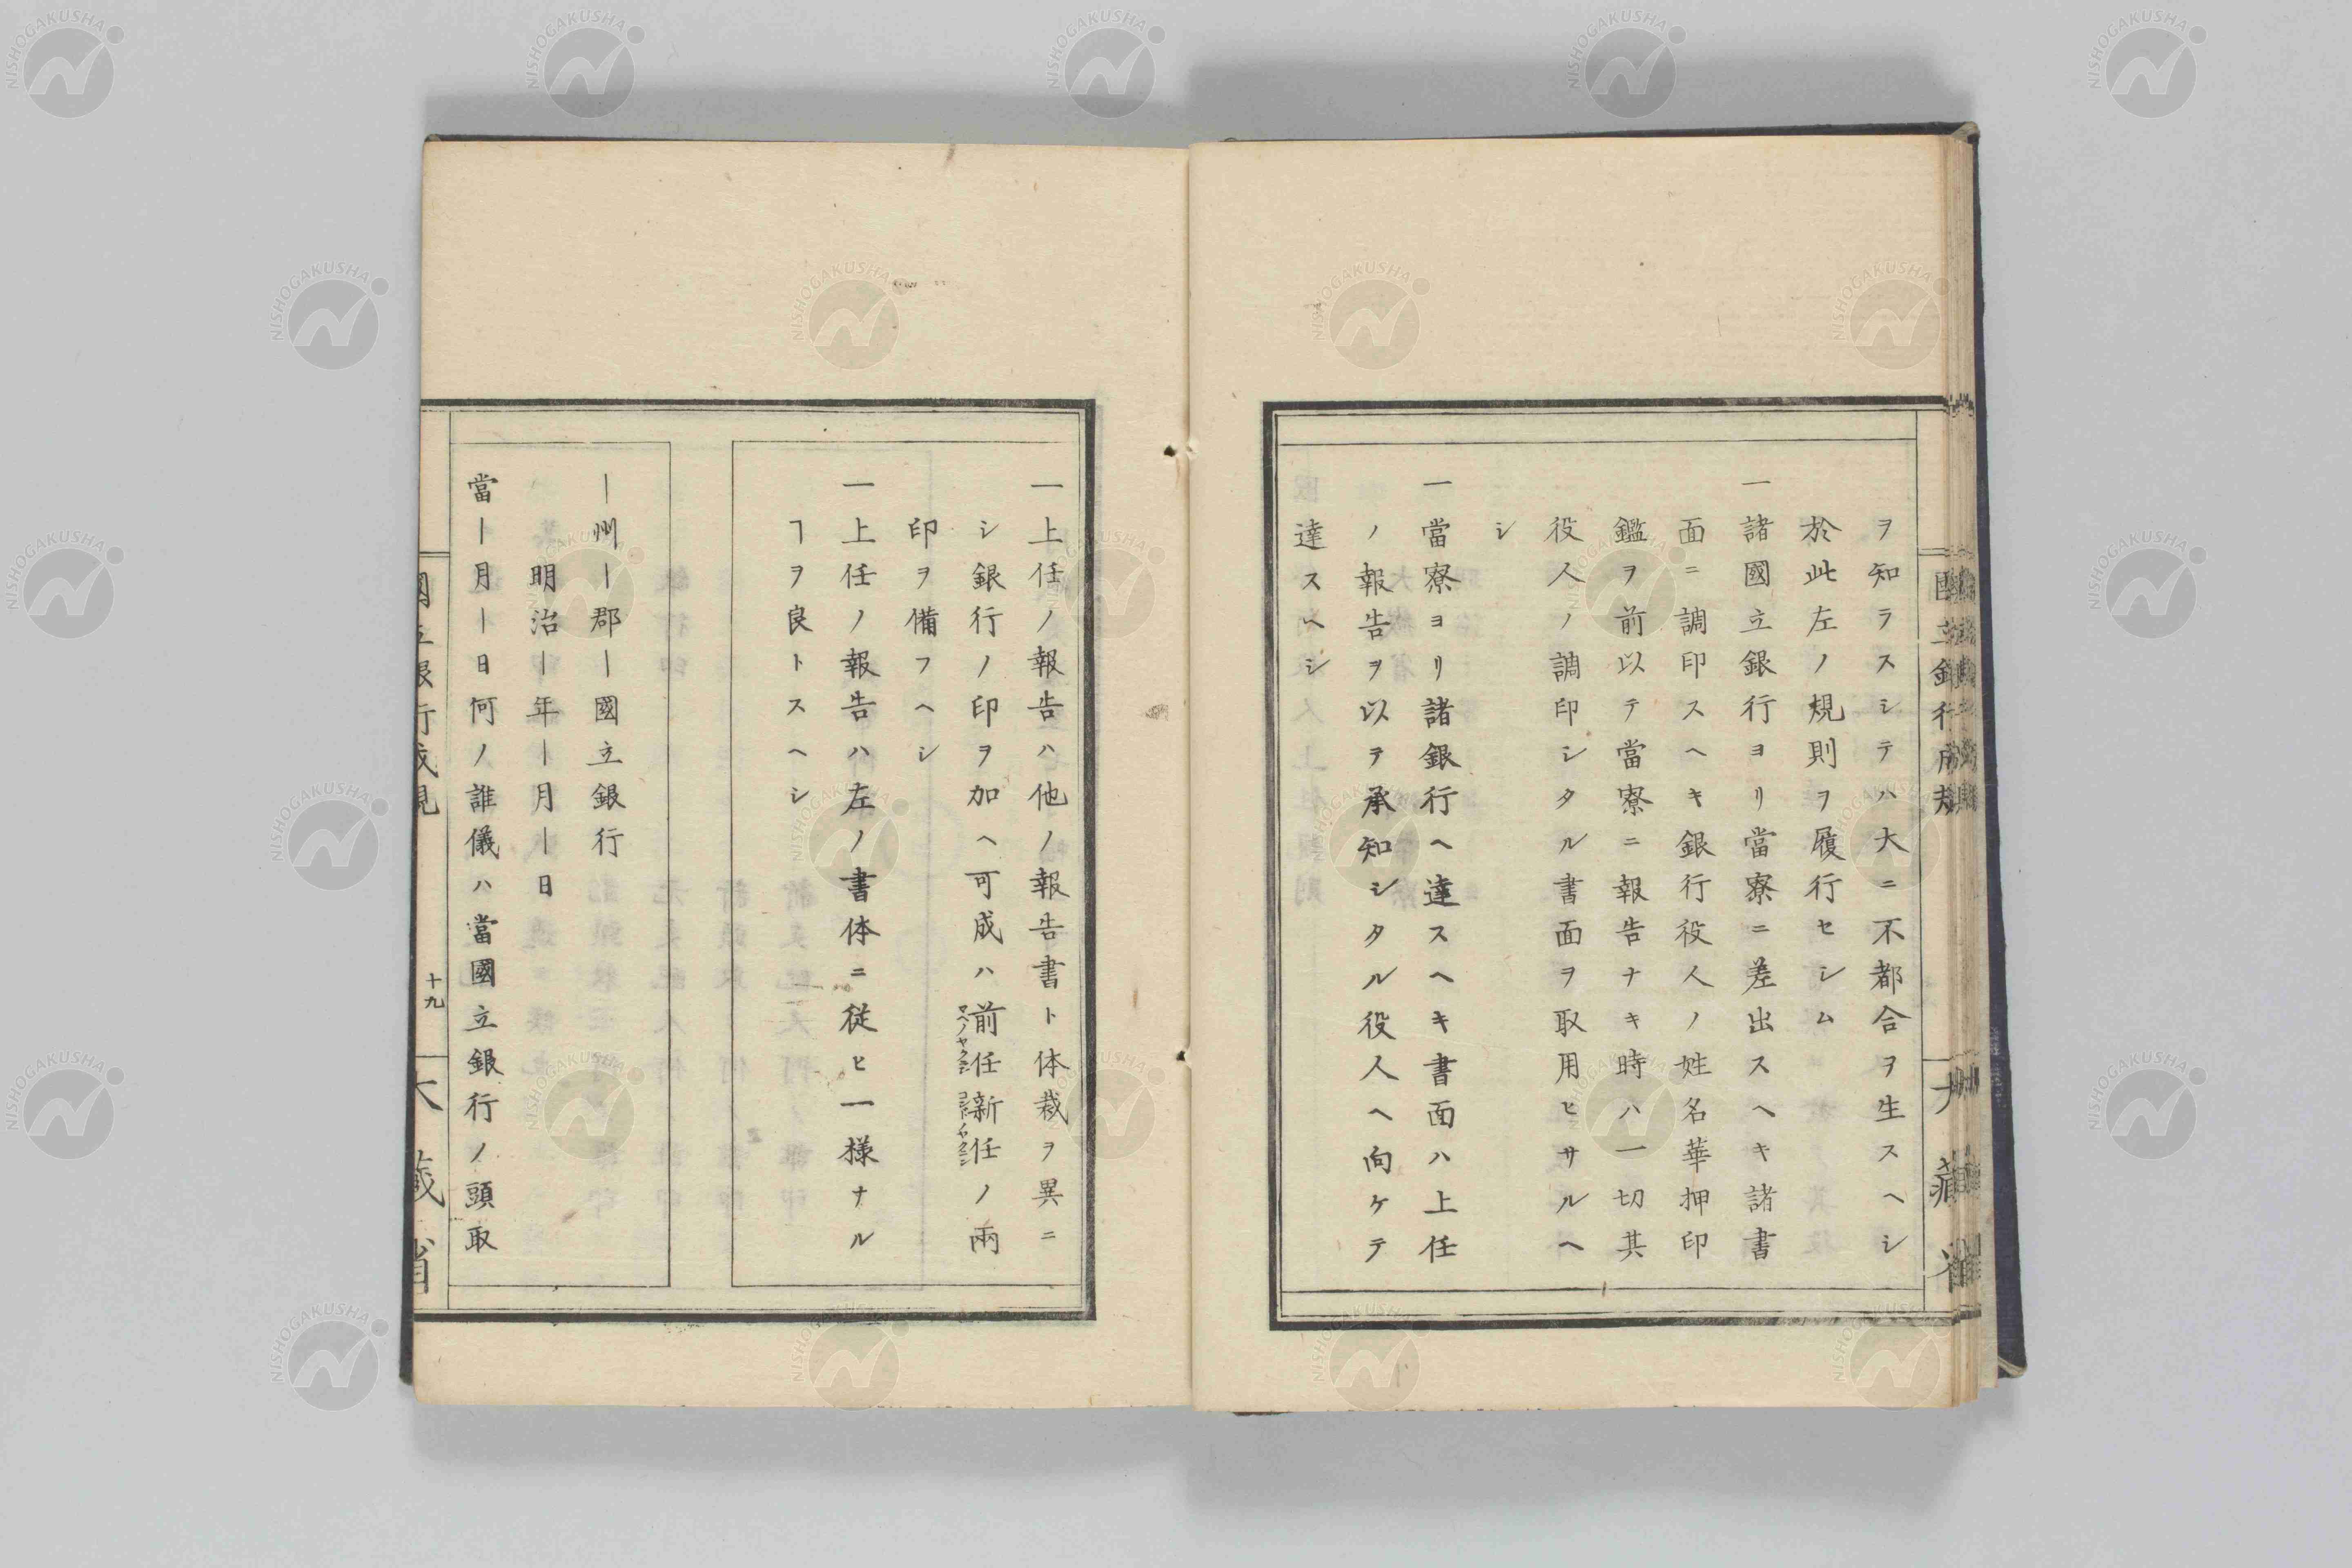 ヲ知ラスシテハ大ニ不都合ヲ生スヘシ
於此左ノ規則ヲ履行セシム
一諸國立銀行ヨリ當寮ニ差出スヘキ諸書
面ニ調印スヘキ銀行役人ノ姓名華押印
鑑ヲ前以テ當寮ニ報告ナキ時ハ一切其
役人ノ調印シタル書面ヲ取用ヒサルヘ
シ
一當寮ヨリ諸銀行ヘ達スヘキ書面ハ上任
ノ報告ヲ以テ承知シタル役人ヘ向ケテ
達スヘシ
一上任ノ報告ハ他ノ報告書ト体裁ヲ異ニ
シ銀行ノ印ヲ加ヘ可成ハ前任新任ノ兩
印ヲ備フヘシ
一上任ノ報告ハ左ノ書体ニ従ヒ一樣ナル
ヿヲ良トスヘシ
｜州｜郡｜國立銀行
明治｜年｜月｜日
當｜月｜日何ノ誰儀ハ當國立銀行ノ頭取
十九
大藏省
NISHOGAKUSHA